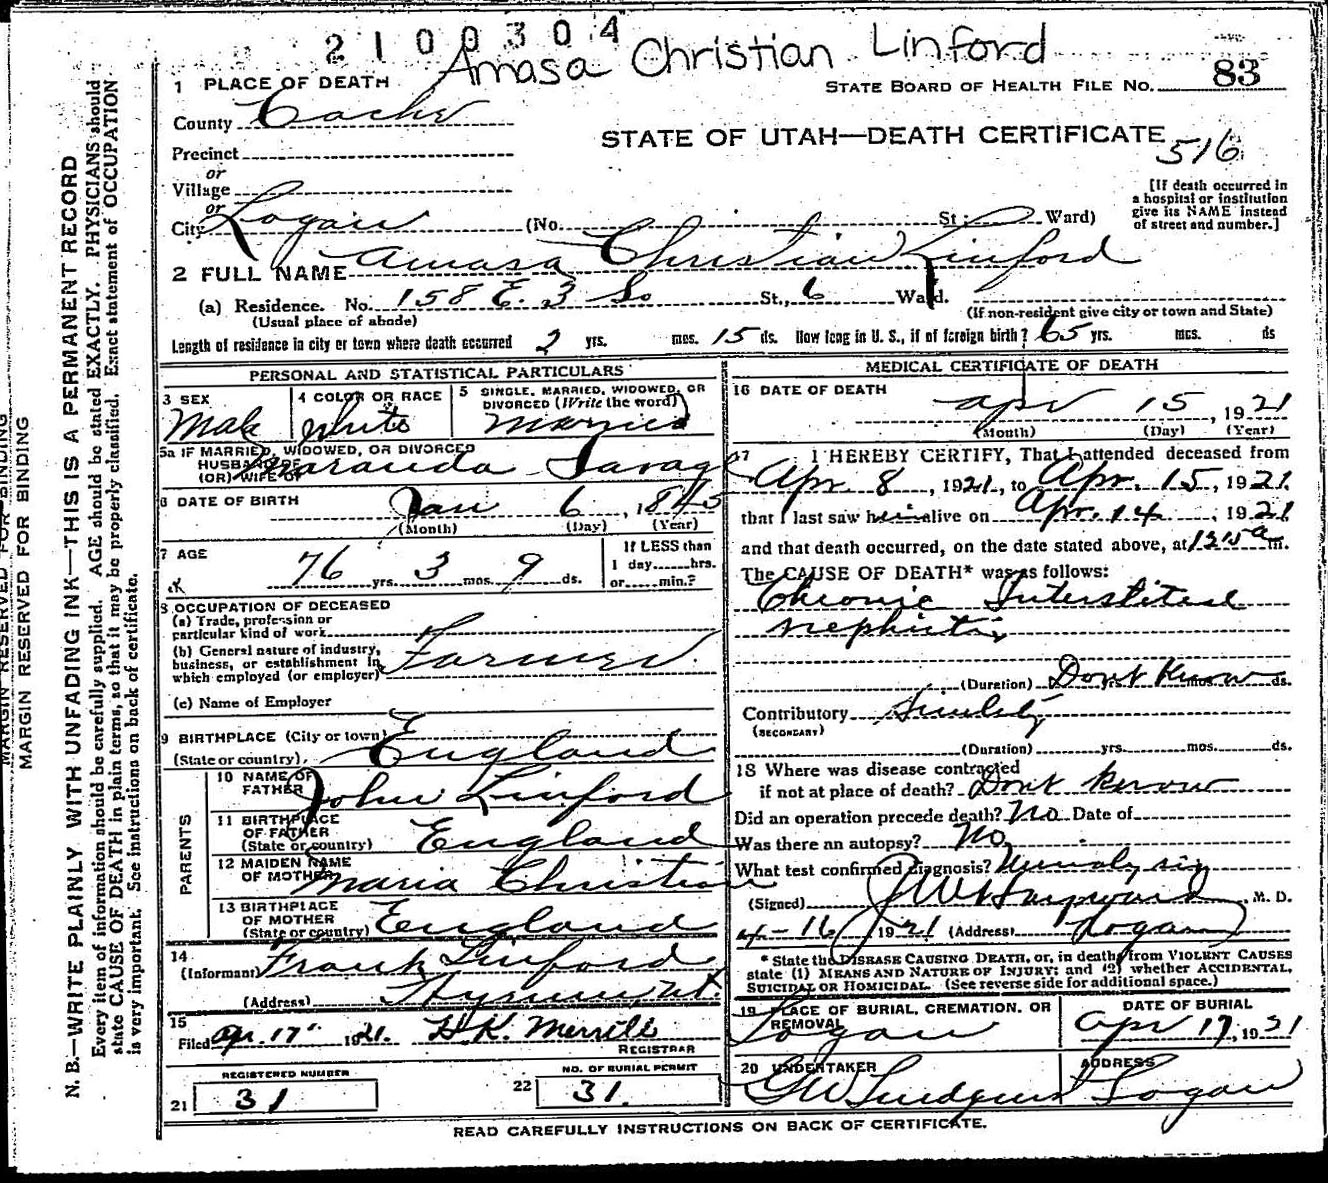 2 1 0 0 3 0 4
Amasa Christian Linford
1 PLACE OF DEATH
STATE BOARD OF HEALTH FILE NO. 83
County Cache
STATE OF UTAH—DEATH CERTIFICATE
516
Precinct
or
Village
or
City Logan (No. St.; Ward)
[If death occurred in
a hospital or institution
give its NAME instead
of street and number.]
2 FULL NAME Amasa Christian Linford
(a) Residence. No. 158 E. 3 So St., 6 Ward.
(Usual place of abode)
(If non-resident give city or town and State)
Length of residence in city or town where death occurred 2 yrs. mos. 15 ds. How long in U. S., if of foreign birth? 65 yrs. mos. ds
PERSONAL AND STATISTICAL PARTICULARS
3 SEX Male
4 COLOR OR RACE White
5 SINGLE, MARRIED, WIDOWED, OR
DIVORCED (Write the word)
Married
5a IF MARRIED, WIDOWED, OR DIVORCED
HUSBAND OF
(OR) WIFE OF
Maranda Savage
6 DATE OF BIRTH Jan 6, 1845
(Month) (Day) (Year)
7 AGE
76 yrs. 3 mos. 9 ds.
If LESS than
1 day......hrs.
or......min.?
8 OCCUPATION OF DECEASED
(a) Trade, profession or
particular kind of work
(b) General nature of industry,
business, or establishment in
which employed (or employer) Farmer.
(c) Name of Employer
9 BIRTHPLACE (City or town)
(State or country) England
PARENTS
10 NAME OF
FATHER John Linford
11 BIRTHPLACE
OF FATHER
(State or country) England
12 MAIDEN NAME
OF MOTHER Maria Christian
13 BIRTHPLACE
OF MOTHER
(State or country) England
14
(Informant Frank Linford
(Address) Hyrum, Ut.
15
Filed Apr. 17" 1921. H. K. Merrill
REGISTRAR
REGISTERED NUMBER
21 31
NO. OF BURIAL PERMIT
22 31.
MEDICAL CERTIFICATE OF DEATH
16 DATE OF DEATH
Apr 15, 1921
(Month) (Day) (Year)
17 I HEREBY CERTIFY, That I attended deceased from
Apr. 8, 1921, to Apr. 15, 1921
that I last saw him alive on Apr. 14, 1921
and that death occurred, on the date stated above, at 1215 a m.
The CAUSE OF DEATH* was as follows:
Chronic Interstitial
nephritis
(Duration) Dont Know yrs. mos. ds.
Contributory Senility
(SECONDARY)
(Duration) yrs. mos. ds.
18 Where was disease contracted
if not at place of death? Dont know
Did an operation precede death? No Date of
Was there an autopsy? No
What test confirmed diagnosis?
(Signed) J W Hayward, M. D.
4-16 1921 (Address) Logan
* State the DISEASE CAUSING DEATH, or, in deaths from VIOLENT CAUSES
state (1) MEANS AND NATURE OF INJURY; and (2) whether ACCIDENTAL,
SUICIDAL OR HOMICIDAL. (See reverse side for additional space.)
19 PLACE OF BURIAL, CREMATION, OR
REMOVAL
Logan
DATE OF BURIAL
Apr 17, 1921
20 UNDERTAKER
G W Lindquist
ADDRESS
Logan
READ CAREFULLY INSTRUCTIONS ON BACK OF CERTIFICATE.
MARGIN RESERVED FOR BINDING
MARGIN RESERVED FOR BINDING
N. B.—WRITE PLAINLY WITH UNFADING INK—THIS IS A PERMANENT RECORD
Every item of information should be carefully supplied. AGE should be stated EXACTLY. PHYSICIANS should
state CAUSE OF DEATH in plain terms, so that it may be properly classified. Exact statement of OCCUPATION
is very important. See instructions on back of certificate.